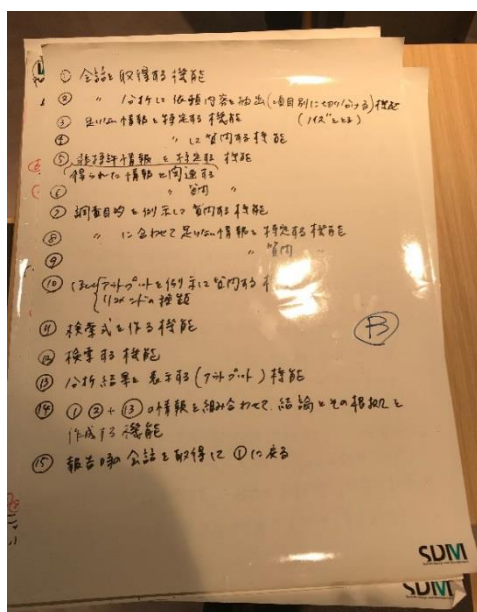 ① 会話を取得する機能
② 〃 分析して依頼内容を抽出(項目別に切り分ける)機能
(ノイズをとる)
③ 足りない情報を特定する機能
④ 〃 に質問する機能
⑤ 非特許情報を特定する機能
得られた情報と関連する
⑥ 〃 質問 〃
⑦ 調査目的を例示して質問する機能
⑧ 〃 に合わせて足りない情報を特定する機能
⑨ 〃 質問 〃
⑩ アウトプットを例示して質問する機
⑪ 検索式を作る機能
⑫ 検索する機能
⑬ 分析結果を表示する(アウトプット)機能
⑭ ①②+⑬の情報を組み合わせて、結論とその根拠を
作成する機能
⑮ 報告時の会話を取得して①に戻る
B
SDM
SDM